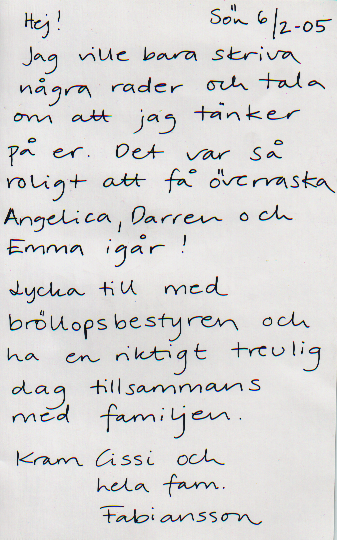 Hej! Sön 6/2-05
Jag ville bara skriva
några rader och tala
om att jag tänker
på er. Det var så
roligt att få överraska
Angelica, Darren och
Emma igår!
Lycka till med
bröllopsbestyren och
ha en riktigt treulig
dag tillsammans
med familjen.
Kram Cissi och
hela fam.
Fabiansson